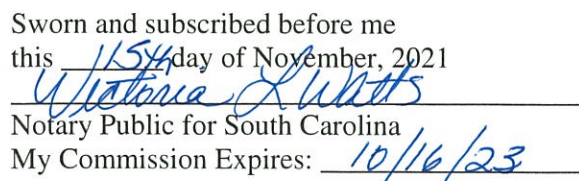 Sworn and subscribed before me
this 15th day of November, 2021
Victoria L Watts
Notary Public for South Carolina
My Commission Expires: 10/16/23